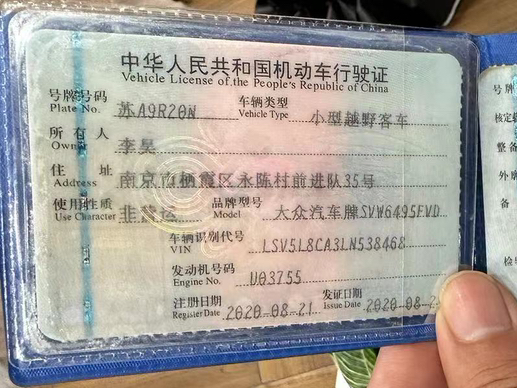 中华人民共和国机动车行驶证
Vehicle License of the People's Republic of China
号牌号码 苏A9R20N 车辆类型 小型越野客车
Plate No. Vehicle Type
所有人 李昊
Owner
住址 南京市栖霞区永陈村前进队35号
Address
使用性质 非营运 品牌型号 大众汽车牌SVW6495FVD
Use Character Model
车辆识别代号 LSV5L8CA3LN538468
VIN
发动机号码 U03755
Engine No.
注册日期 2020-08-21 发证日期 2020-08-2
Register Date Issue Date
号牌
核定载
整备
外廓
备
检